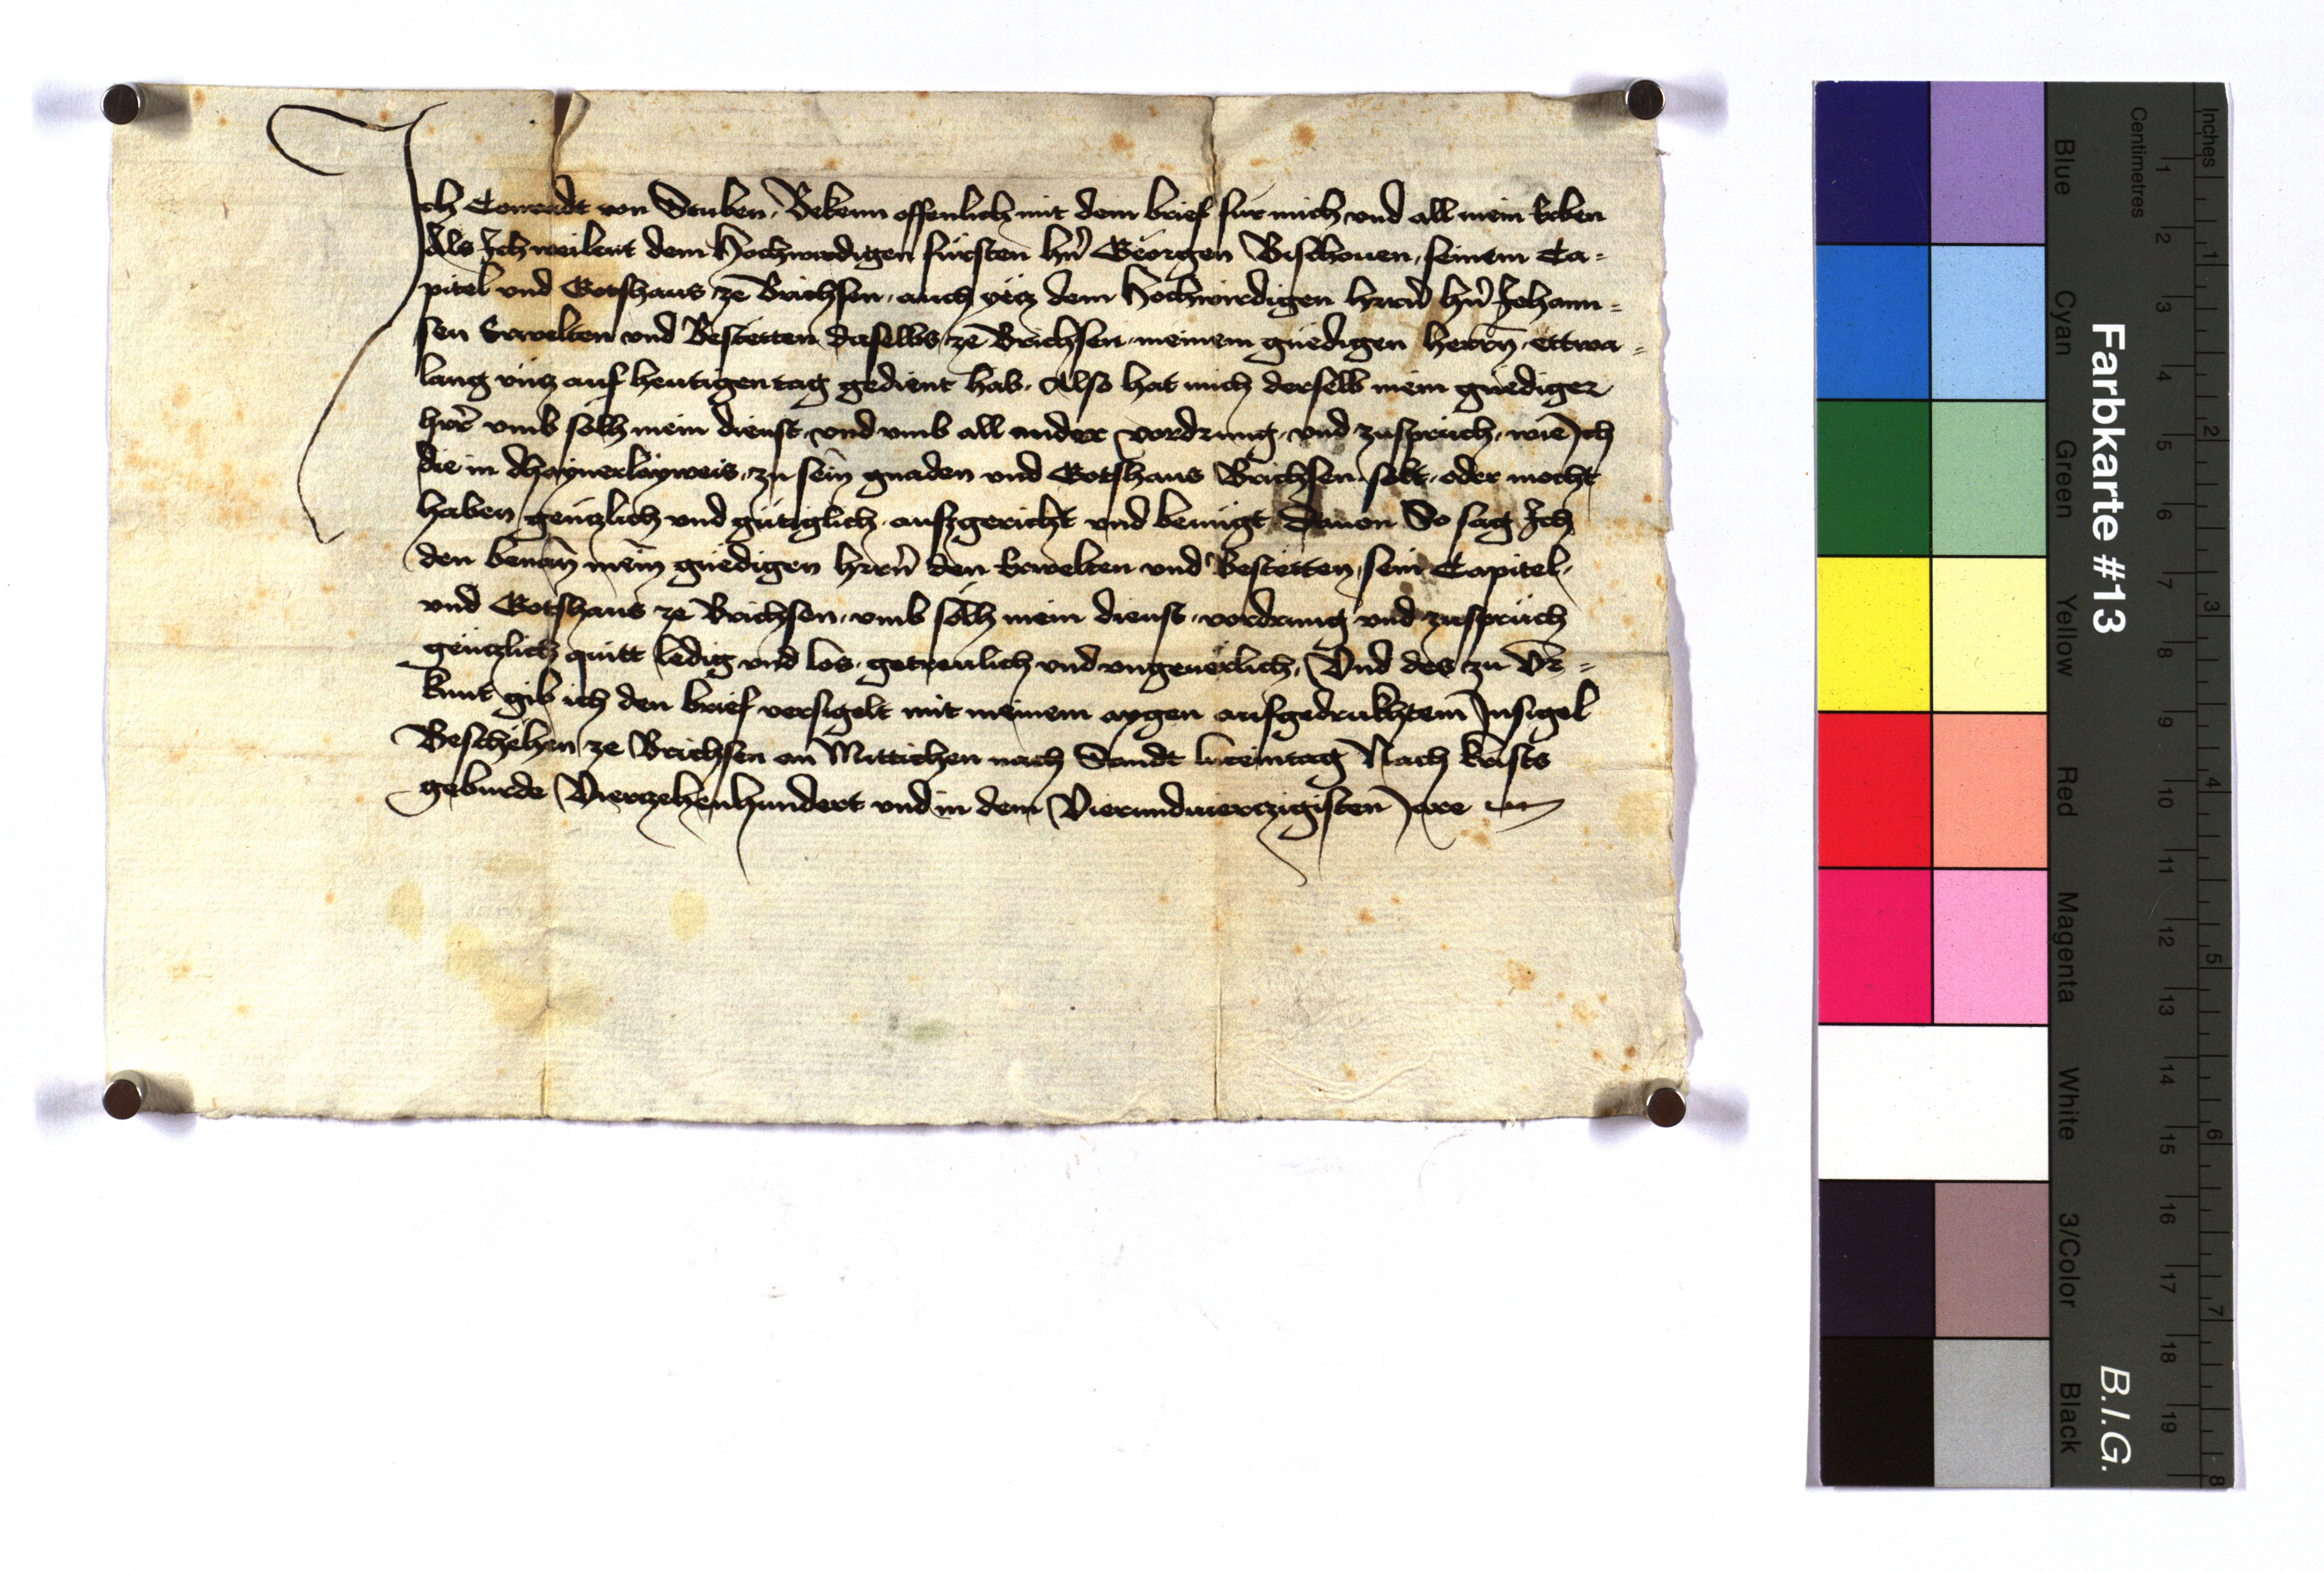 Ich Conradt von Stuben, Bekenn offenlich mit dem brief für mich und all mein Erben
Als Ich weilent dem Hochwirdigen fürsten hrn Georgen Bischouen, seinem Ca=
pitel und Gotshaus ze Brichsen, auch yetz dem Hochwirdigen hern hrn Johann=
sen Erwelten und Bestetten daselbs ze Brichsen meinem gnedigen herrn ettwa=
lang untz auf heutigen tag gedient hab. Also hat mich derselb mein gnediger
herr umb sölh mein dienst, und umb all ander vordrung, und zuspruch, wie Ich
die in dhaynerlayweis, zu sein gnaden und Gotshaus Brichsen hett, oder mocht
haben gentzlich und gütiglich ausgericht und benugt Dauon So sag Ich
den benan mein gnedigen hern den Erwelten und Bestetten, sein Capitel,
und Gotshaus ze Brichsen, umb sölh mein dienst, vordrung und zuspruch
gentzlich quitt ledig und los, getreulich und ungeuerlich, Und des zu Ur=
kunt gib ich den brief versigelt mit meinem aygen aufgedrukhtem Insigel
Beschehen ze Brichsen an Mittichen nach Sandt luceintag Nach krists
geburde Viertzehenhundert und in dem Vierundviertzigisten Jare
Farbkarte #13
B.I.G.
Blue
Cyan
Green
Yellow
Red
Magenta
White
3/Color
Black
Centimetres
1 2 3 4 5 6 7 8 9 10 11 12 13 14 15 16 17 18 19
Inches
1 2 3 4 5 6 7 8